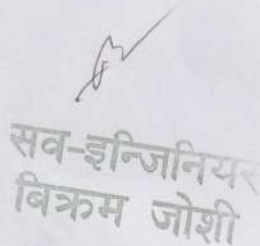 सव-इन्जिनियर
बिक्रम जोशी